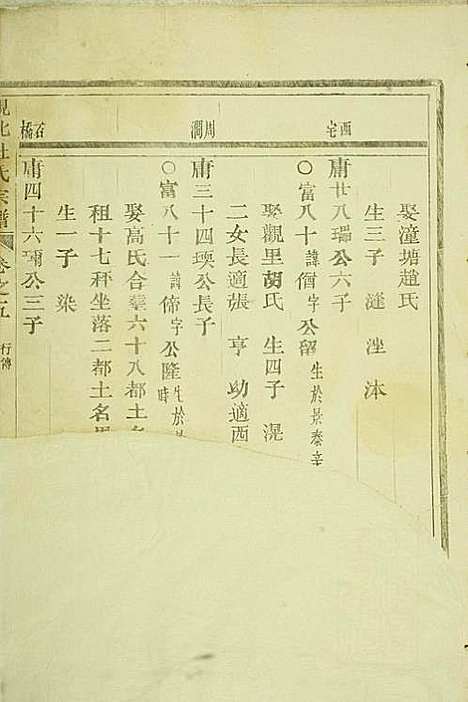 西宅
周澗
石橋
娶潼塘趙氏
生三子 漨 浬 沐
庸廿八瑞公六子
○富八十諱僧字公留生於景泰辛
娶觀里胡氏 生四子 滉
二女長適張 亨 助適西
庸三十四瑛公長子
○富八十一諱儔字公隆生於時
娶髙氏合塟六十八都土名
租十七秤坐落二都土名
生一子 染
庸四十六璊公三子
北杜氏宗譜 卷之五 行傳